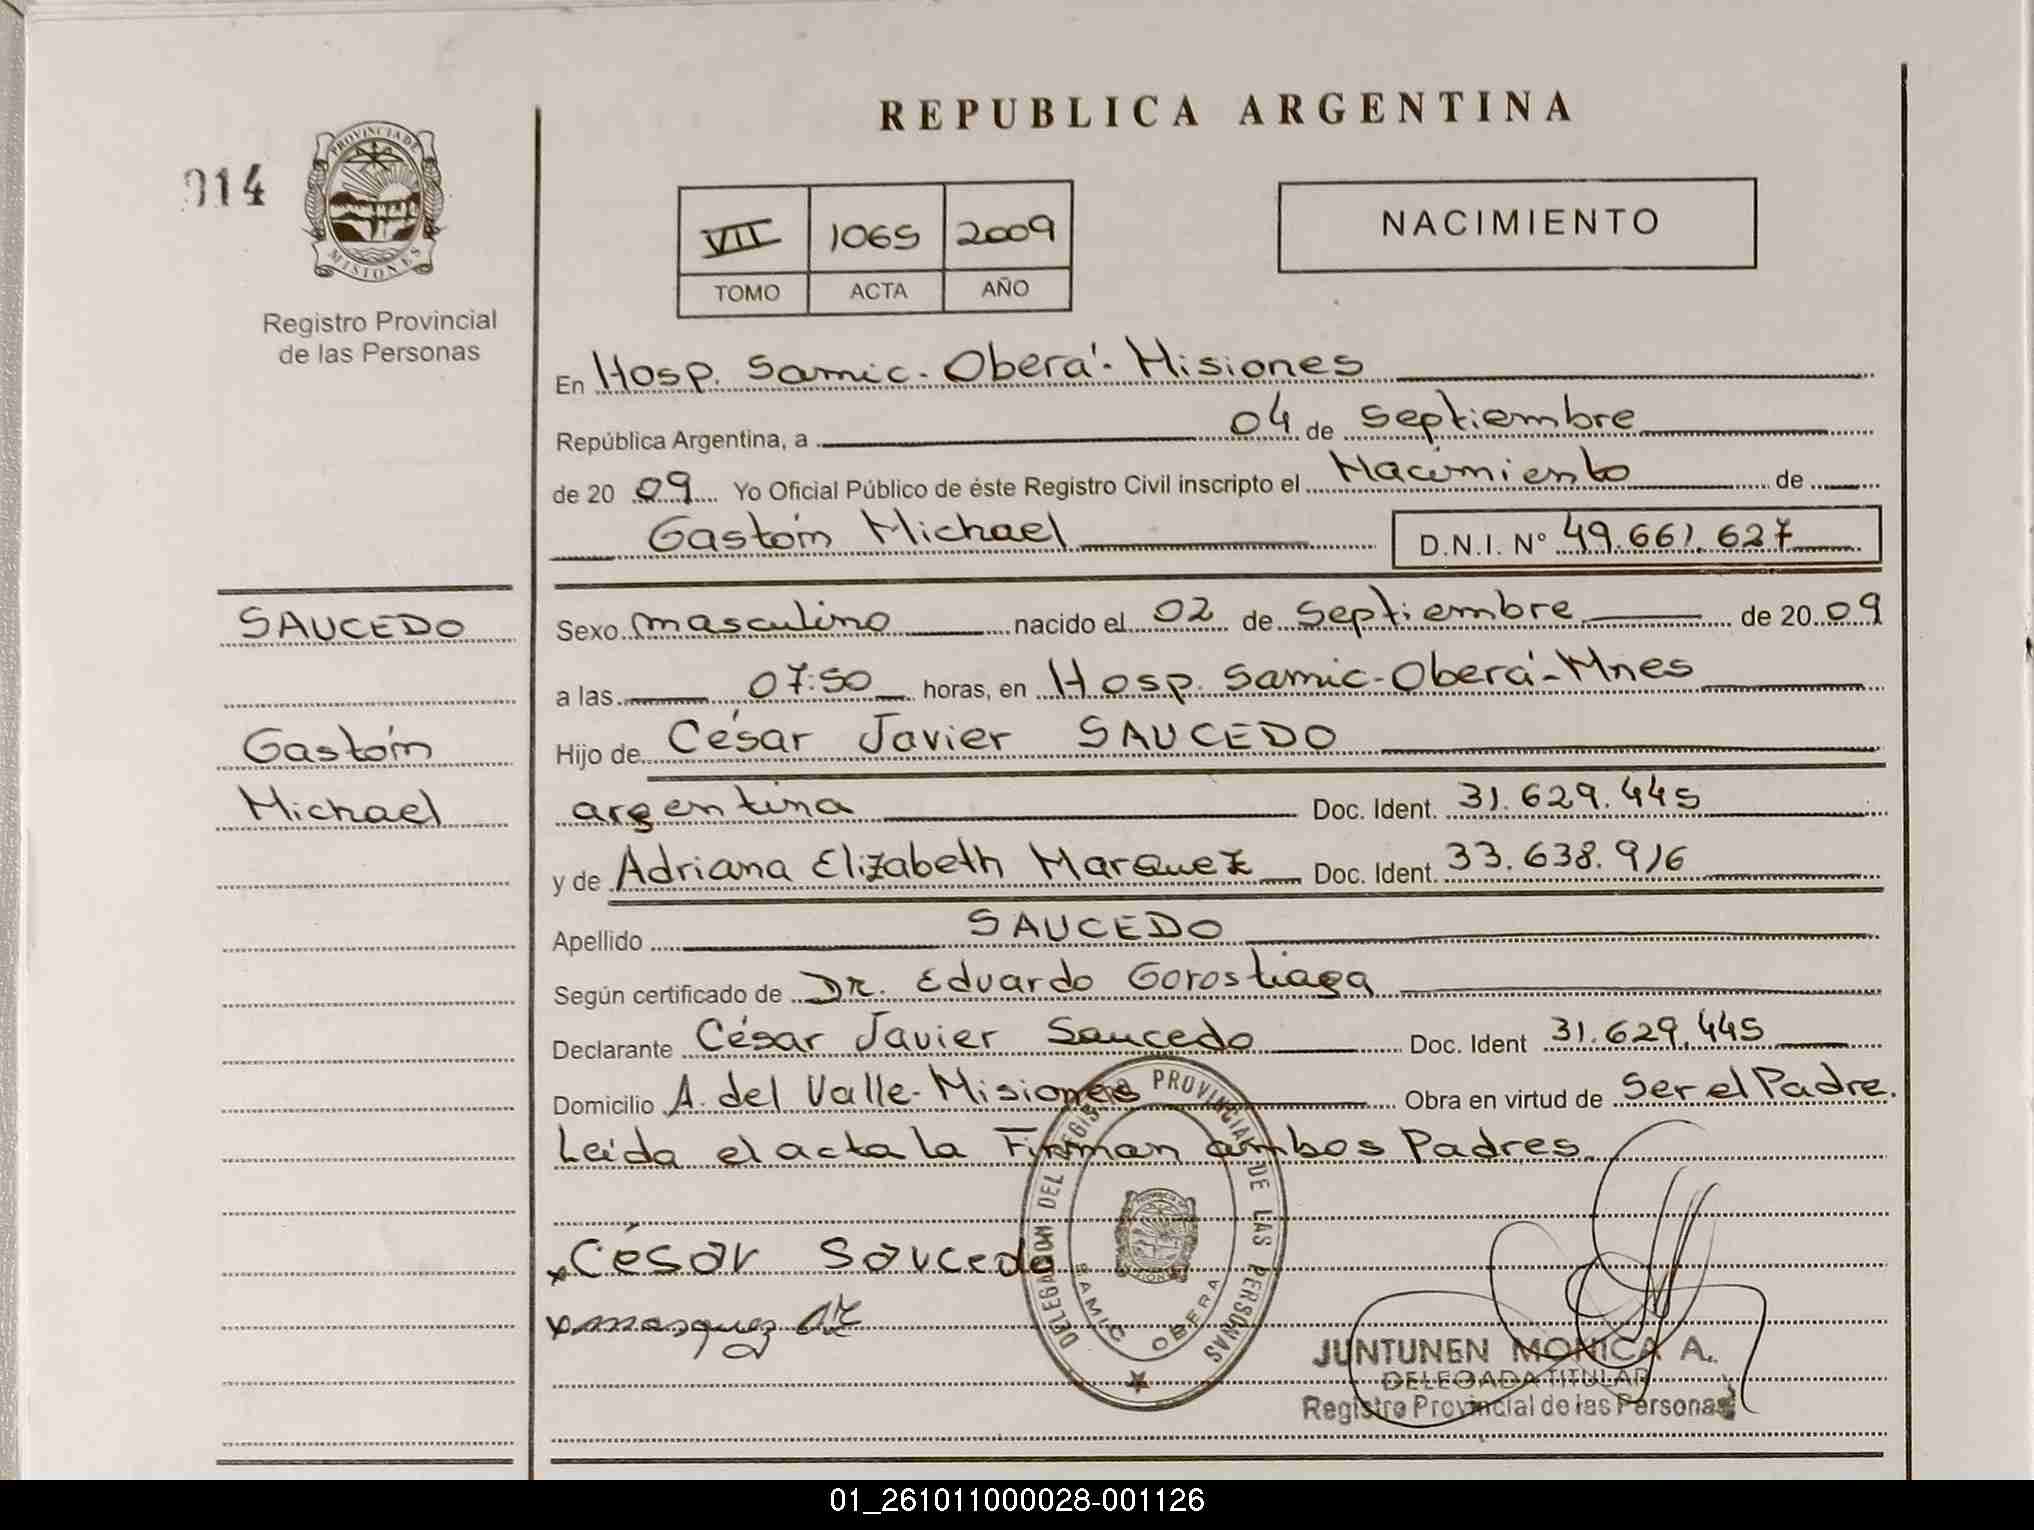 REPUBLICA ARGENTINA
014
PROVINCIA DE
MISIONES
Registro Provincial
de las Personas
VII 1065 2009
TOMO ACTA AÑO
NACIMIENTO
En Hosp. Samic. Oberá. Misiones
República Argentina, a 04 de Septiembre
de 20 09 Yo Oficial Público de éste Registro Civil inscripto el Nacimiento de
Gastón Michael D.N.I. Nº 49.661.627
SAUCEDO
Gastón
Michael
Sexo masculino nacido el 02 de Septiembre de 20 09
a las 07:50 horas, en Hosp. Samic-Oberá-Mnes
Hijo de César Javier SAUCEDO
argentina Doc. Ident. 31.629.445
y de Adriana Elizabeth Marquez Doc. Ident. 33.638.916
Apellido SAUCEDO
Según certificado de DR. Eduardo Gorostiaga
Declarante César Javier Saucedo Doc. Ident 31.629.445
Domicilio A. del Valle-Misiones Obra en virtud de Ser el Padre.
Leída el acta la Firman ambos Padres
x César Saucedo
x marquez
DELEGACION DEL REGISTRO PROVINCIAL DE LAS PERSONAS
SAMIC OBERA
JUNTUNEN MONICA A.
DELEGADA TITULAR
Registro Provincial de las Personas
01_261011000028-001126